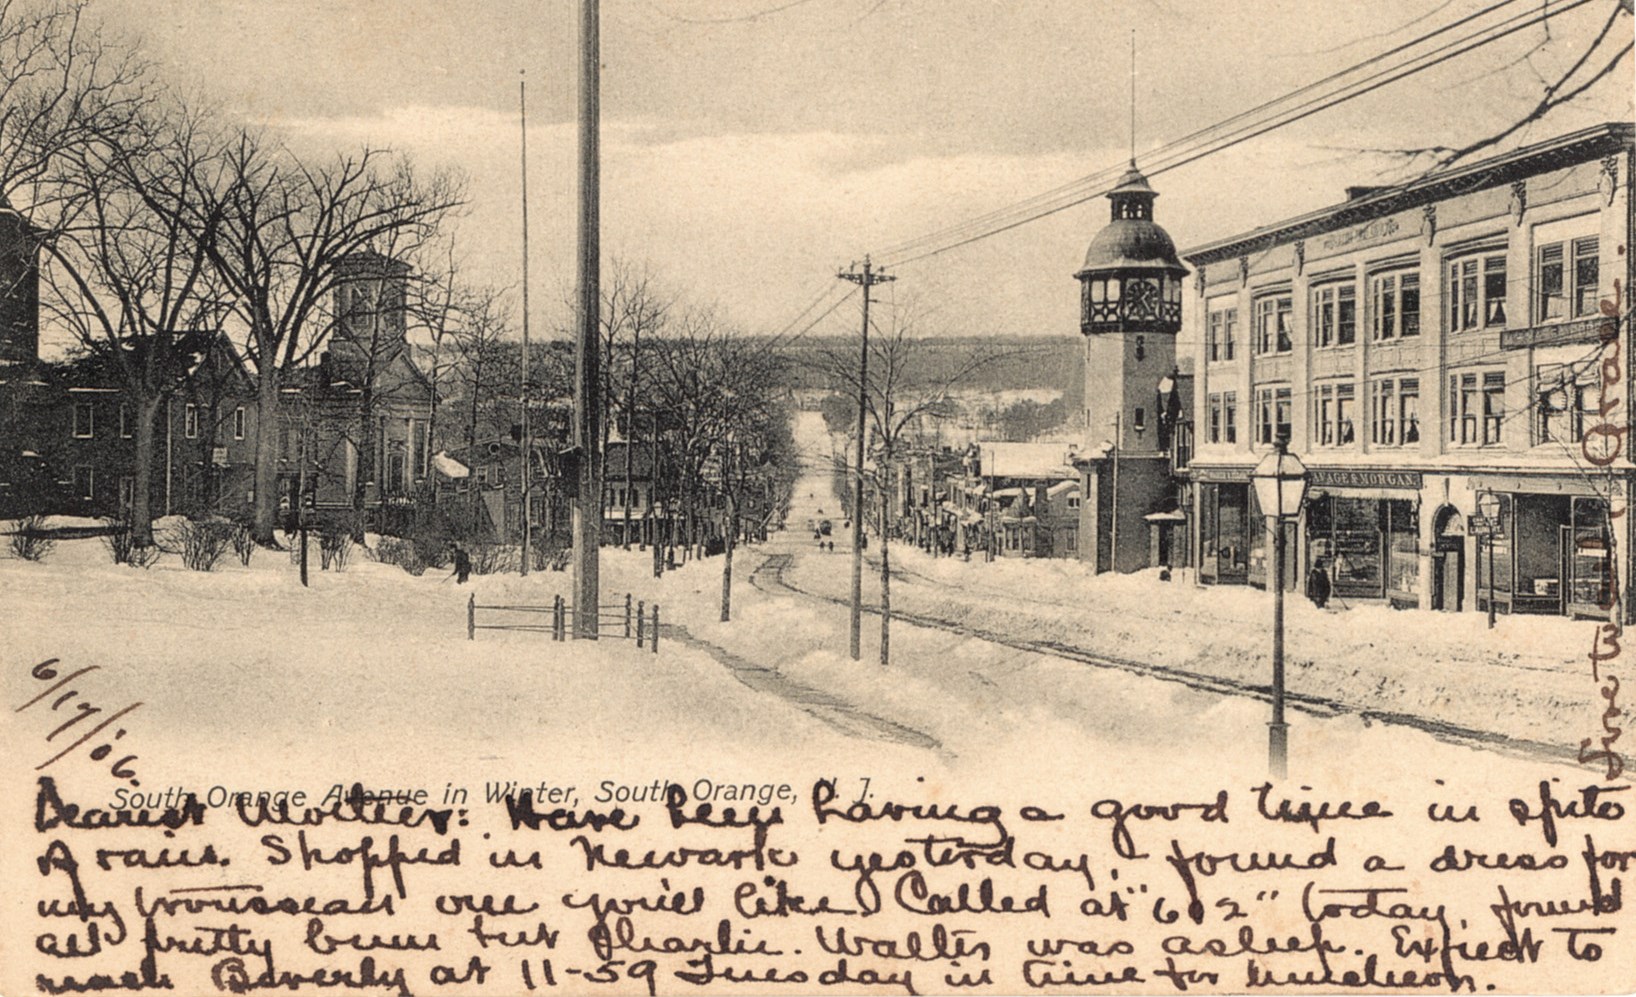 SAVAGE & MORGAN.
6/17/06.
South Orange Avenue in Winter, South Orange, N. J.
Dearest Mother: Have been having a good time in spite
of rain. Shopped in Newark yesterday, found a dress for
my trousseau one you'll like. Called at "602" today, found
all pretty bum but Charlie. Walter was asleep. Expect to
reach Beverly at 11-59 Tuesday in time for luncheon.
Grace.